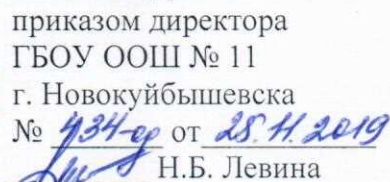 приказом директора
ГБОУ ООШ № 11
г. Новокуйбышевска
№ 434-од от 25.11.2019
Н.Б. Левина